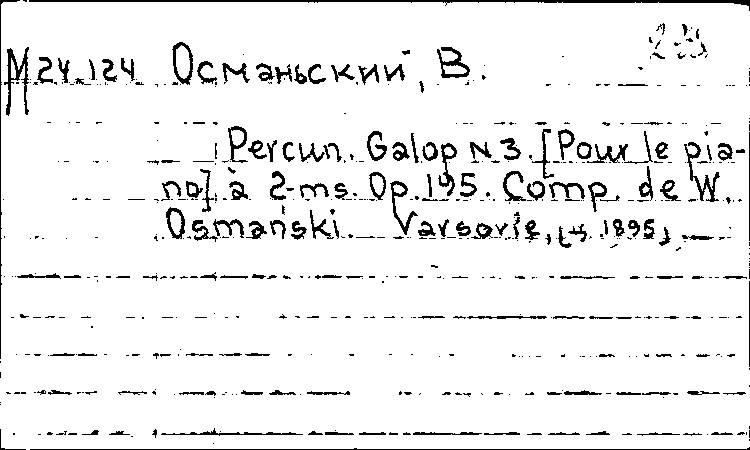 М 24.124 Османьский, В.
Percun. Galop N 3. [Pour le pia-
no] à 2-ms. Op. 195. Comp. de W.
Osmański. Varsovie, 1895].